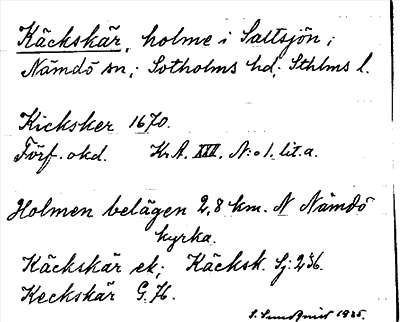 Käckskär, holme i Saltsjön;
Nämdö sn; Sotholms hd; Sthlms l.
Kicksker 1670.
Förf. okd. Kr. A. XXV, N:o 1. lit. a.
Holmen belägen 2,8 km. N Nämdö
kyrka.
Käckskär ek; Käcksk. Sj: 236.
Keckskär G. 76.
S. Sundquist 1935.